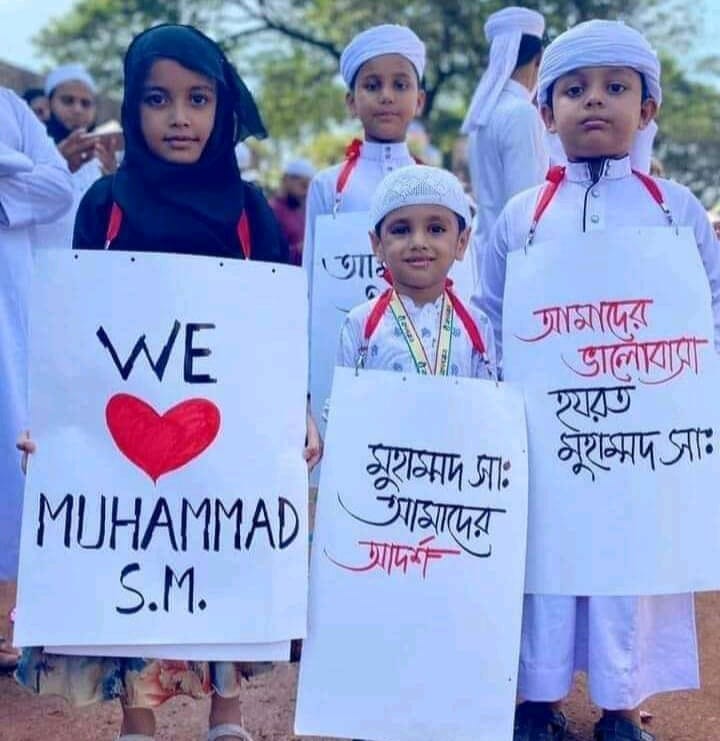 WE
MUHAMMAD
S.M.
মুহাম্মদ সা:
আমাদের
আদর্শ
আমাদের
ভালোবাসা
হযরত
মুহাম্মদ সা: